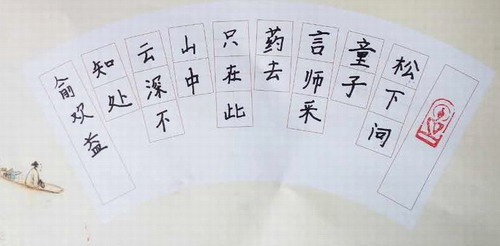 松下问
童子
言师采
药去
只在此
山中
云深不
知处
俞欢益